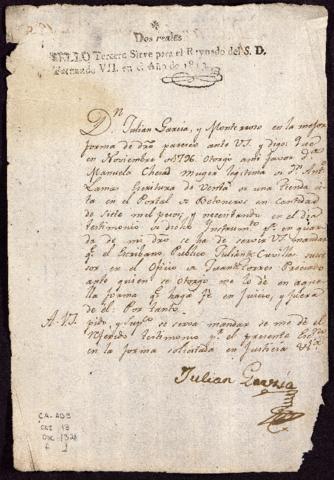 Dos reales
SELLO Tercero Sirve para el Reynado del S. D.
Fernando VII. en el Año de
Dn Julian Garcia, y Monteroso en la mejor
forma de dro parezco ante VS. y digo: Que
en Noviembre de 796. Otorgó a mi favor Da
Manuela muger legitima de Dn Ant.
Lamas Escritura de Venta de una Tienda
sita en el Portal de Botoneros en cantidad
de siete mil pesos, y necesitando en el dia
testimonio de dicho Instrumto pa en guar
da de mi dro se ha de servir VS. mandar
qe el Escribano Publico Julian de Cuvillas suce
sor en el Oficio de Juan de Torres Preciado
ante quien se otorgó me lo dé en aque
lla forma qe haga fé en Juicio, y fuera
de el. Por tanto
A VS. pido, y sup.co se sirva mandar se me dé el
referido testimonio pr. el presente Esc.no
en la forma solicitada en Justicia
Julian Garcia
CA-AD3
CAJ 18
DOC 1321
f 1